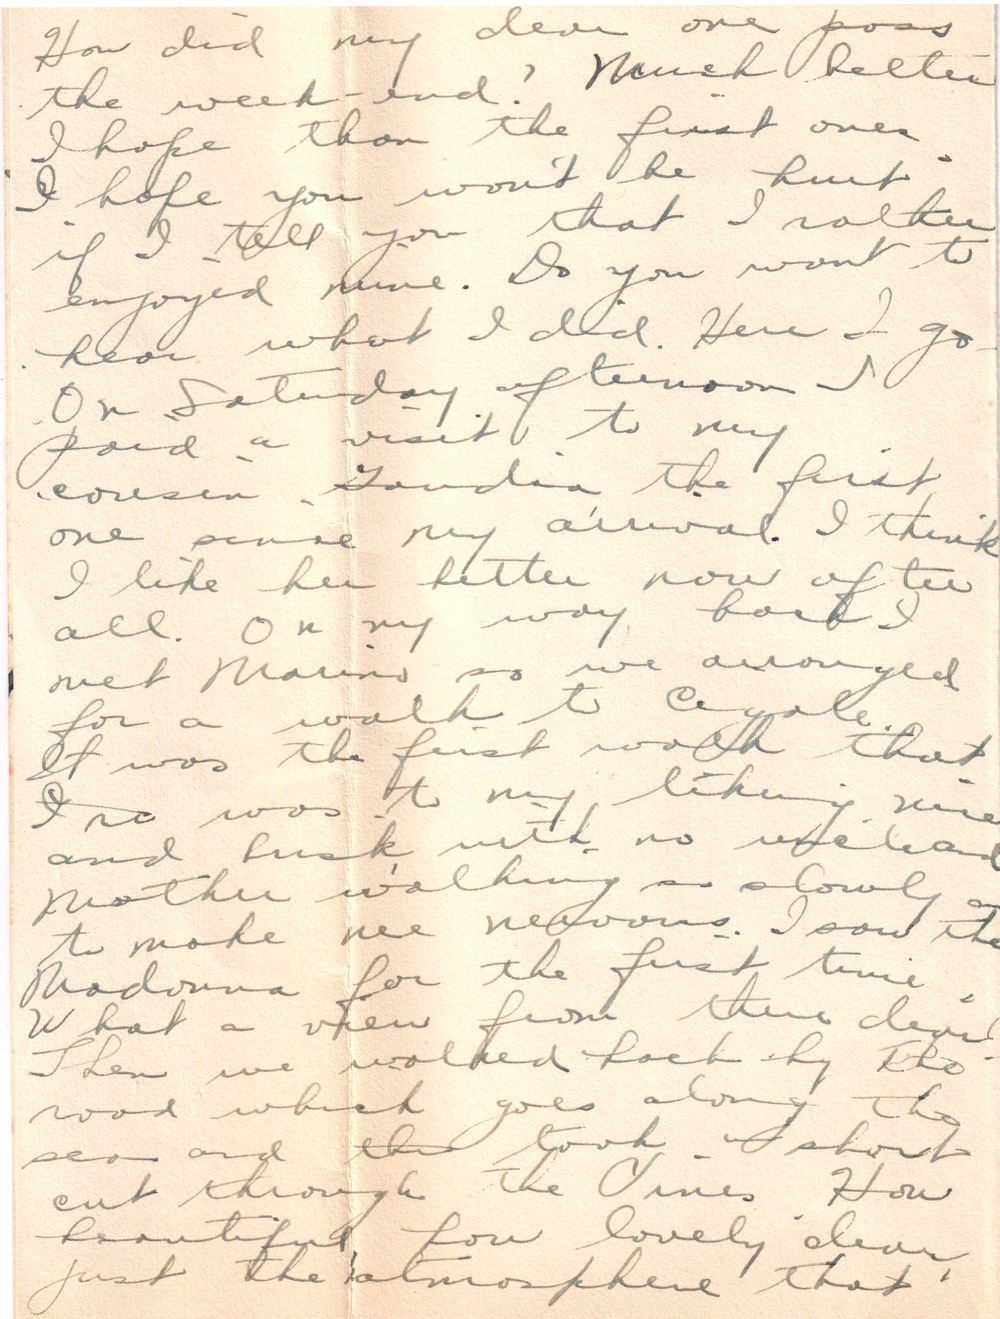 How did my dear one pass
the week-end? Much better
I hope than the first one.
I hope you won't be hurt
if I tell you that I rather
enjoyed mine. Do you want to
hear what I did. Here I go
On Saturday afternoon I
paid a visit to my
cousin the first
one since my arrival. I think
I like her better now after
all. On my way back I
met Marino so we arranged
for a walk to Cigale.
It was the first walk that
I was to my liking nice
and brisk with no
Mother walking so slowly as
to make me nervous. I saw the
Madonna for the first time
What a view from there dear!
Then we walked back by the
road which goes along the
sea and then took a short
cut through the Pines How
beautiful how lovely dear
just the atmosphere that